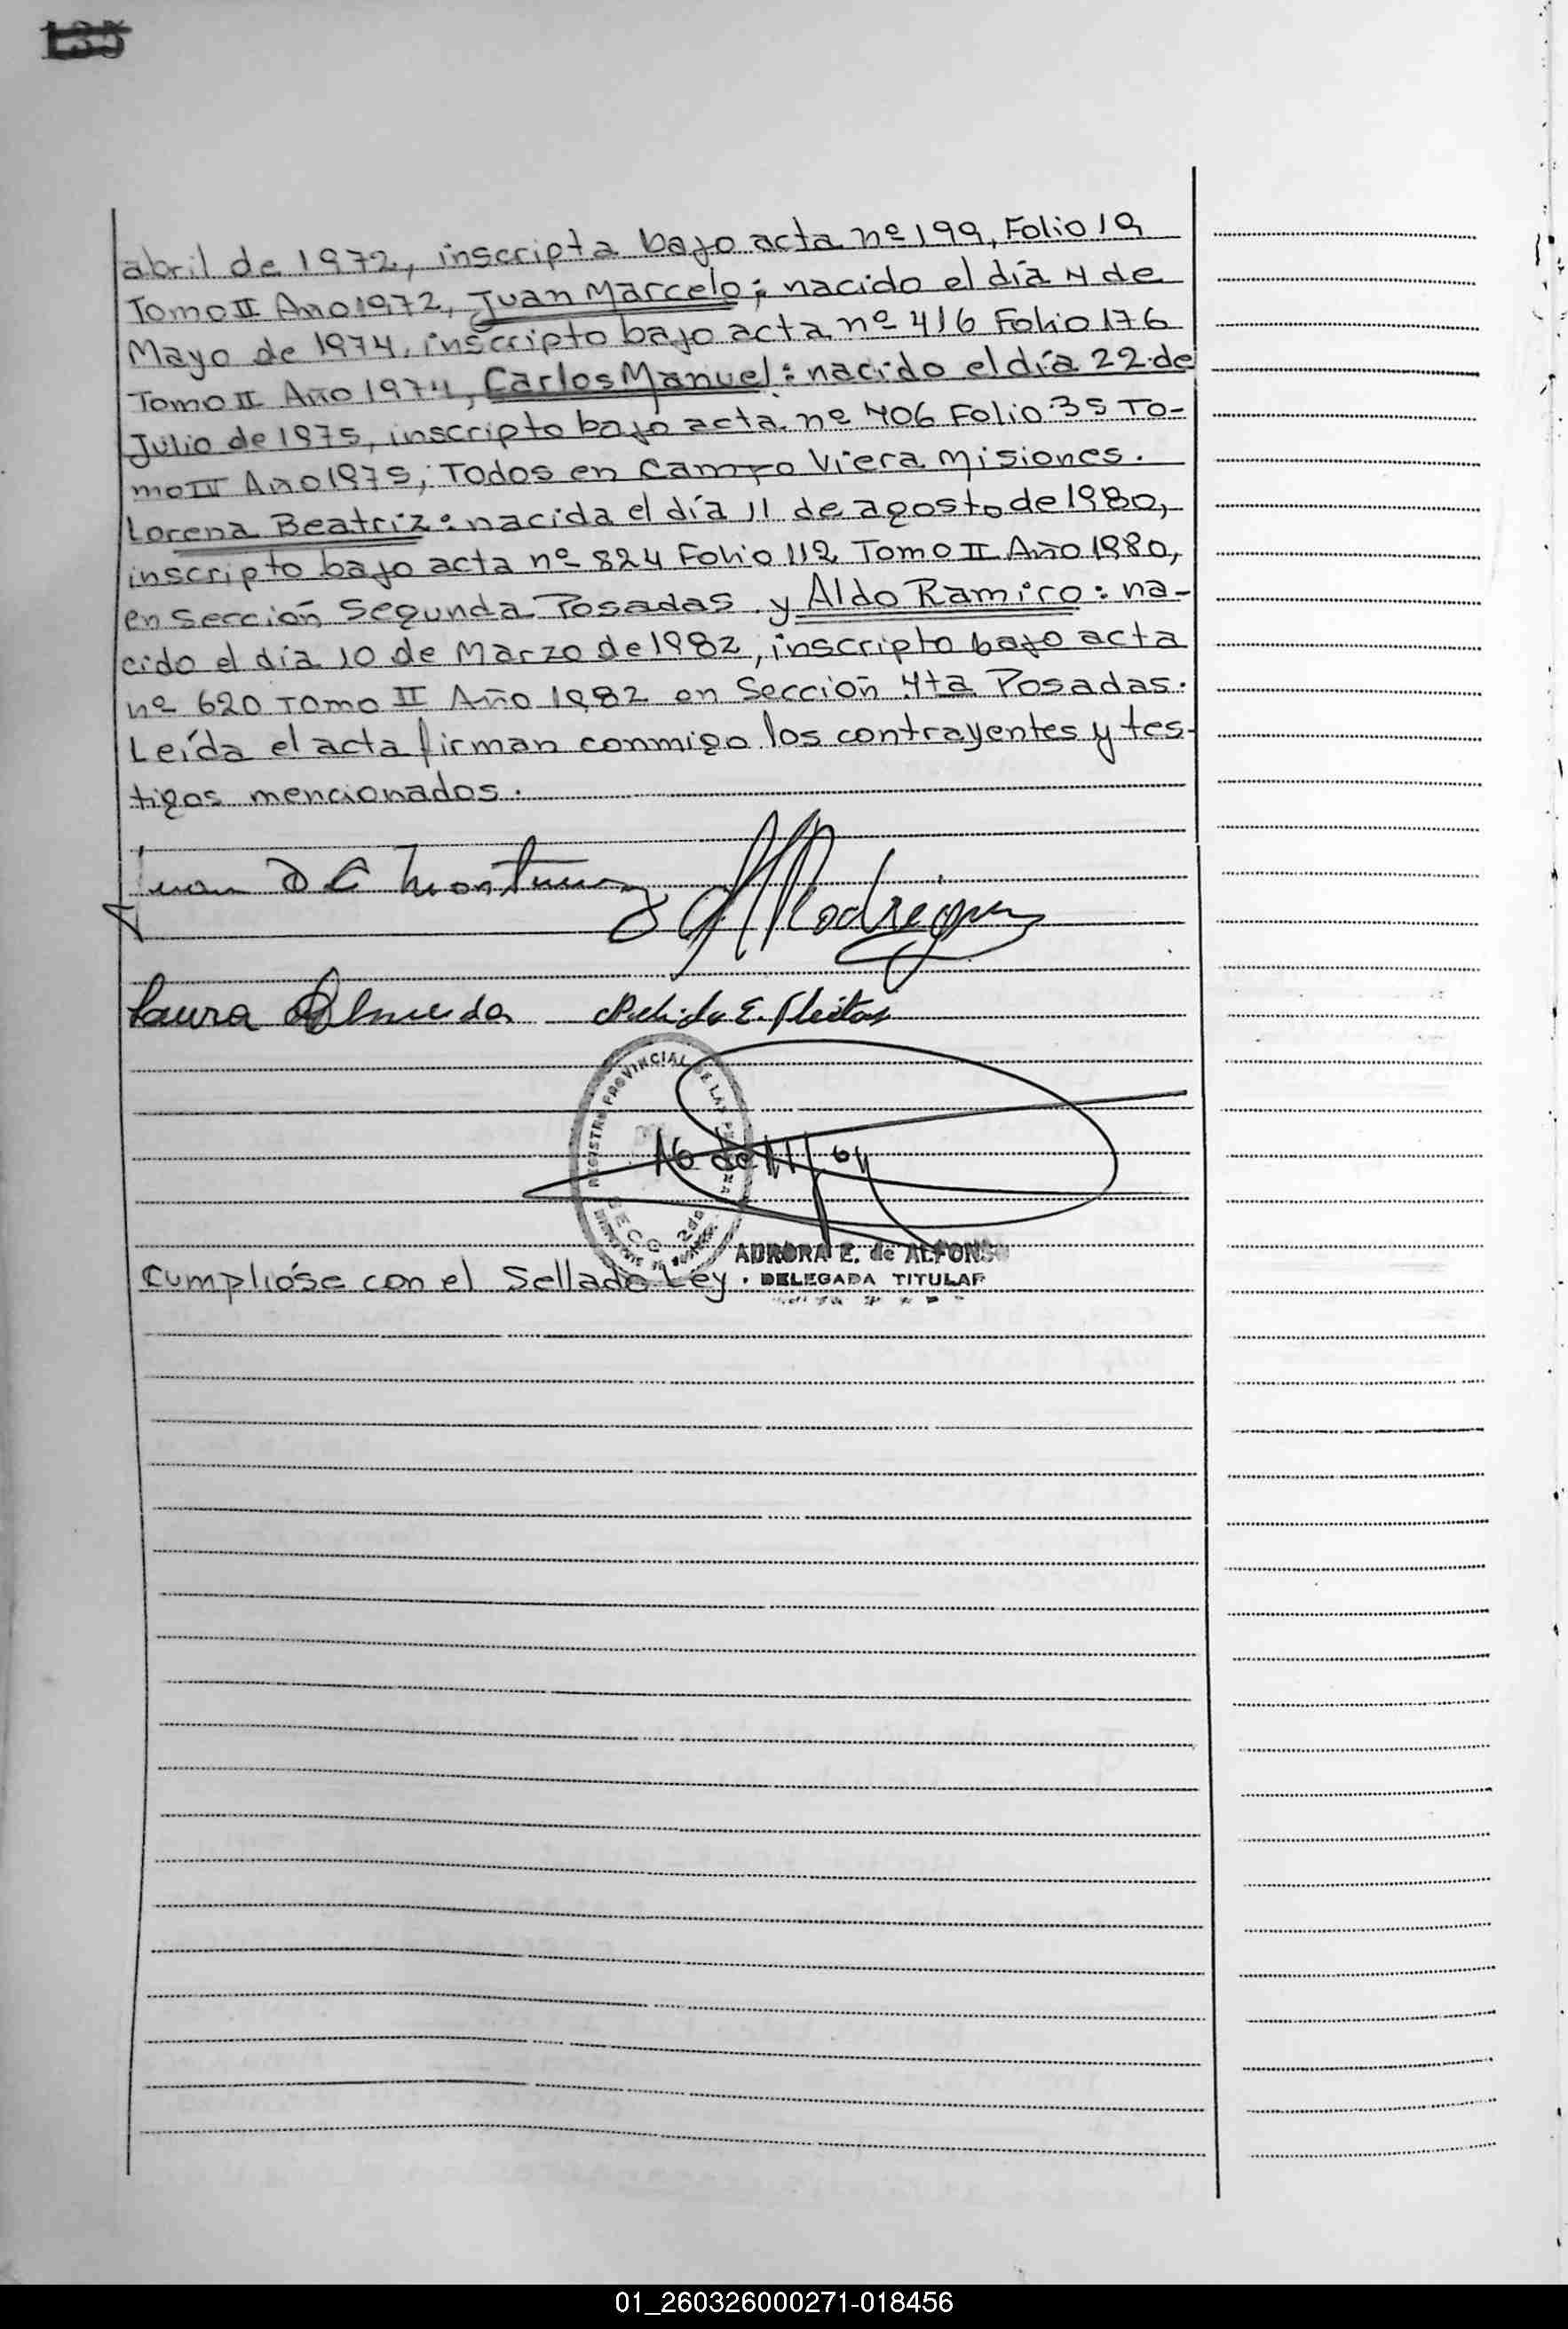 135
abril de 1972, inscripta bajo acta nº 199, Folio 19
Tomo II Año 1972, Juan Marcelo; nacido el día 4 de
Mayo de 1974, inscripto bajo acta nº 416 Folio 176
Tomo II Año 1974, Carlos Manuel: nacido el día 22 de
Julio de 1975, inscripto bajo acta nº 406 Folio 35 To-
mo IV Año 1975; Todos en Campo Viera Misiones.
Lorena Beatriz: nacida el día 11 de agosto de 1980,
inscripto bajo acta nº 824 Folio 112 Tomo II Año 1980,
en Sección Segunda Posadas y Aldo Ramiro: na-
cido el día 10 de Marzo de 1982, inscripto bajo acta
nº 620 Tomo II Año 1982 en Sección 4ta Posadas.
Leída el acta firman conmigo los contrayentes y tes-
tigos mencionados.
Juan D C
Rodriguez
Laura Almeida E. Fleitas
REGISTRO PROVINCIAL DE LAS
SECC 2da
AURORA E. de ALFONSO
Cumplióse con el Sellado Ley. DELEGADA TITULAR
01_260326000271-018456